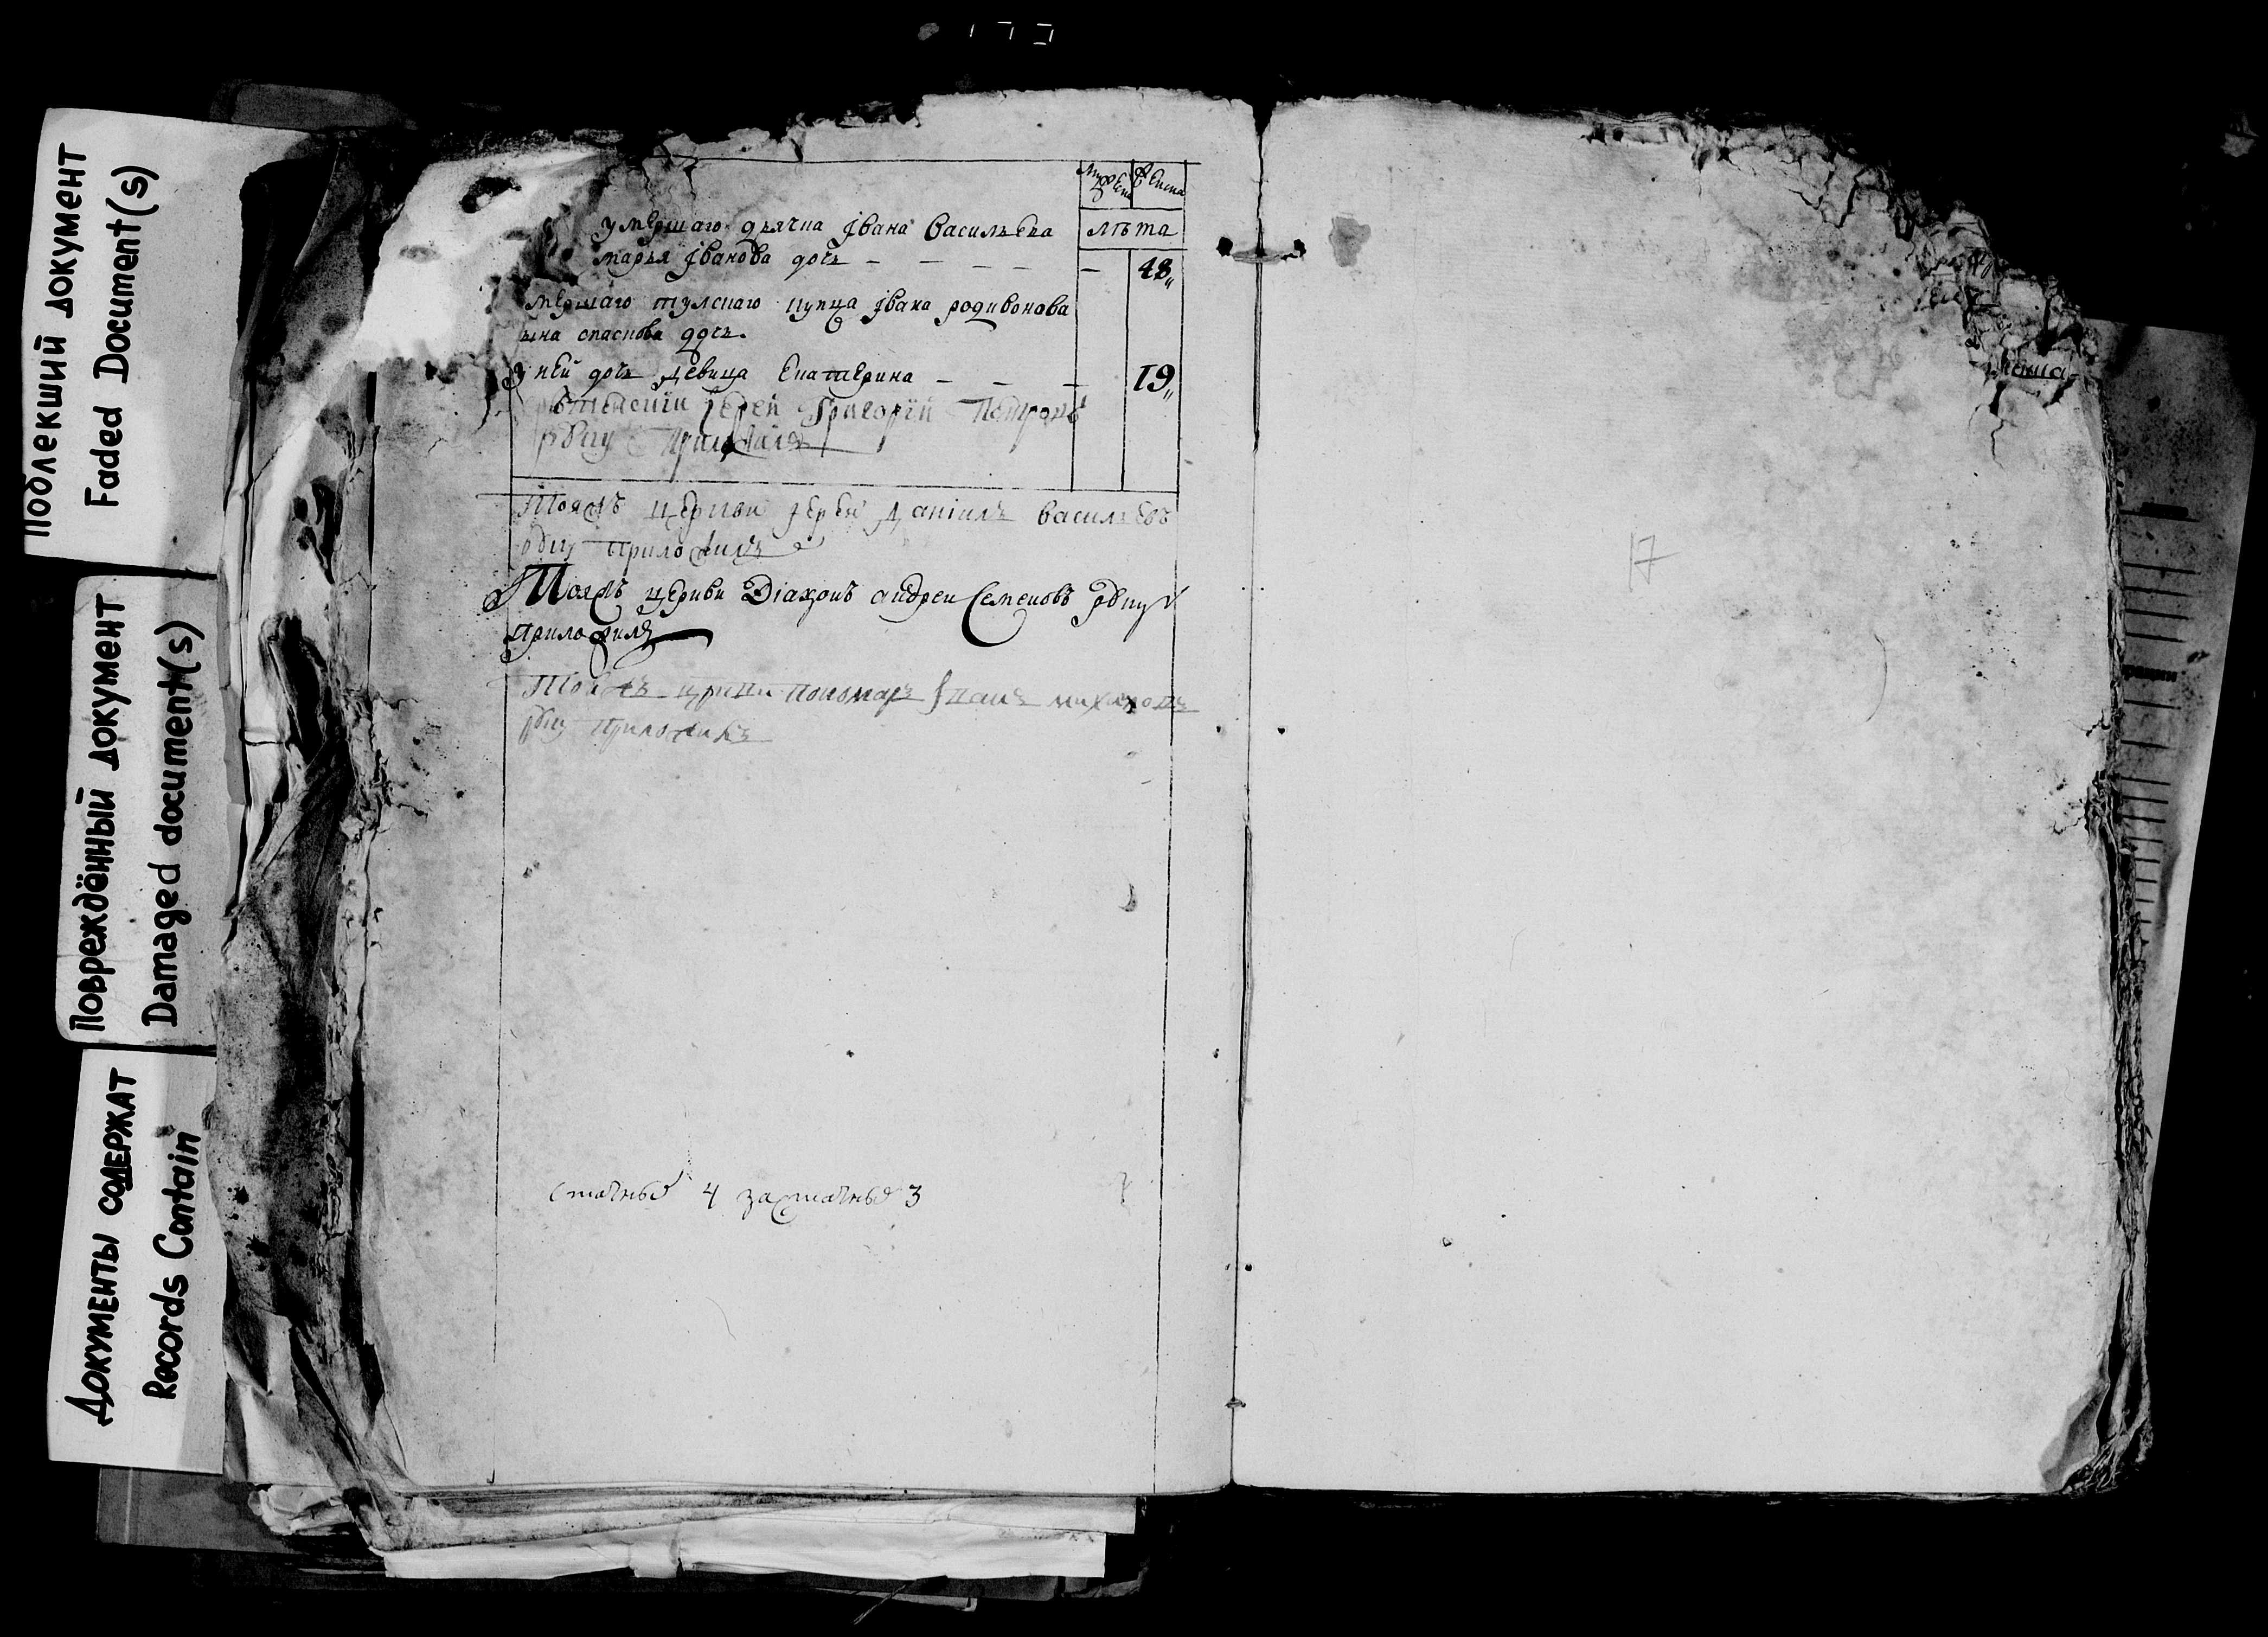 Поблекший документ
Faded Document(s)
Повреждённый документ
Damaged document(s)
Документы содержат
Records Contain
Женска
лѣта
умершаго дьячка Iвана Васильева
марья Iванова дочь — — — — — 48
мершаго тулскаго купца Iвана родивонова
спаскова дочь
У ней дочь девица Екатерина — — — 19
Iерей Григорий Петровъ
руку приложилъ
Тояжъ церкви Iерей Данiилъ Васильевъ
руку приложилъ
Тояжъ церкви Дiаконъ андреи Семеновъ руку
приложилъ
Тоя жъ цркви пономарь
руку приложилъ
статные 4 застатные 3
17